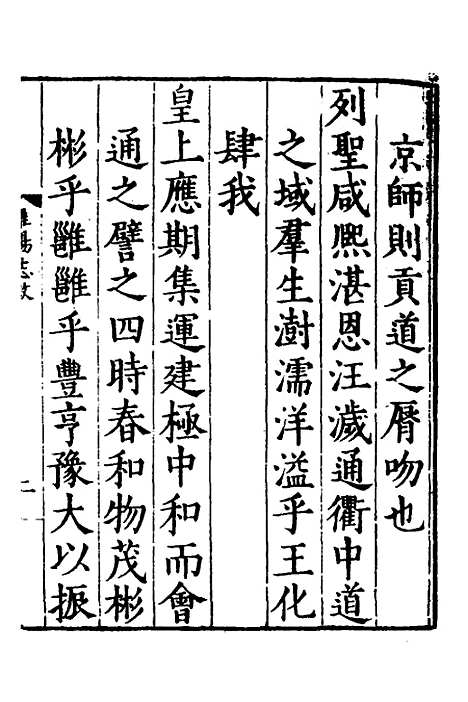 京師則貢道之脣吻也
列聖咸熙湛恩汪濊通衢中道
之域羣生澍濡洋溢乎王化
肆我
皇上應期集運建極中和而會
通之譬之四時春和物茂彬
彬乎雝雝乎豐亨豫大以振